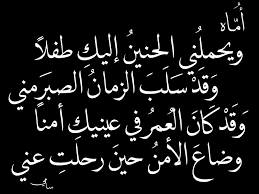 أُمَّاه
ويحملُني الحنينُ إليكِ طفلاً
وَقَدْ سَلَبَ الزمانُ الصبرَ مني
وَقَدْ كَانَ العُمرُ في عينيكِ أمناً
وضاعَ الأمنُ حينَ رحلتِ عني